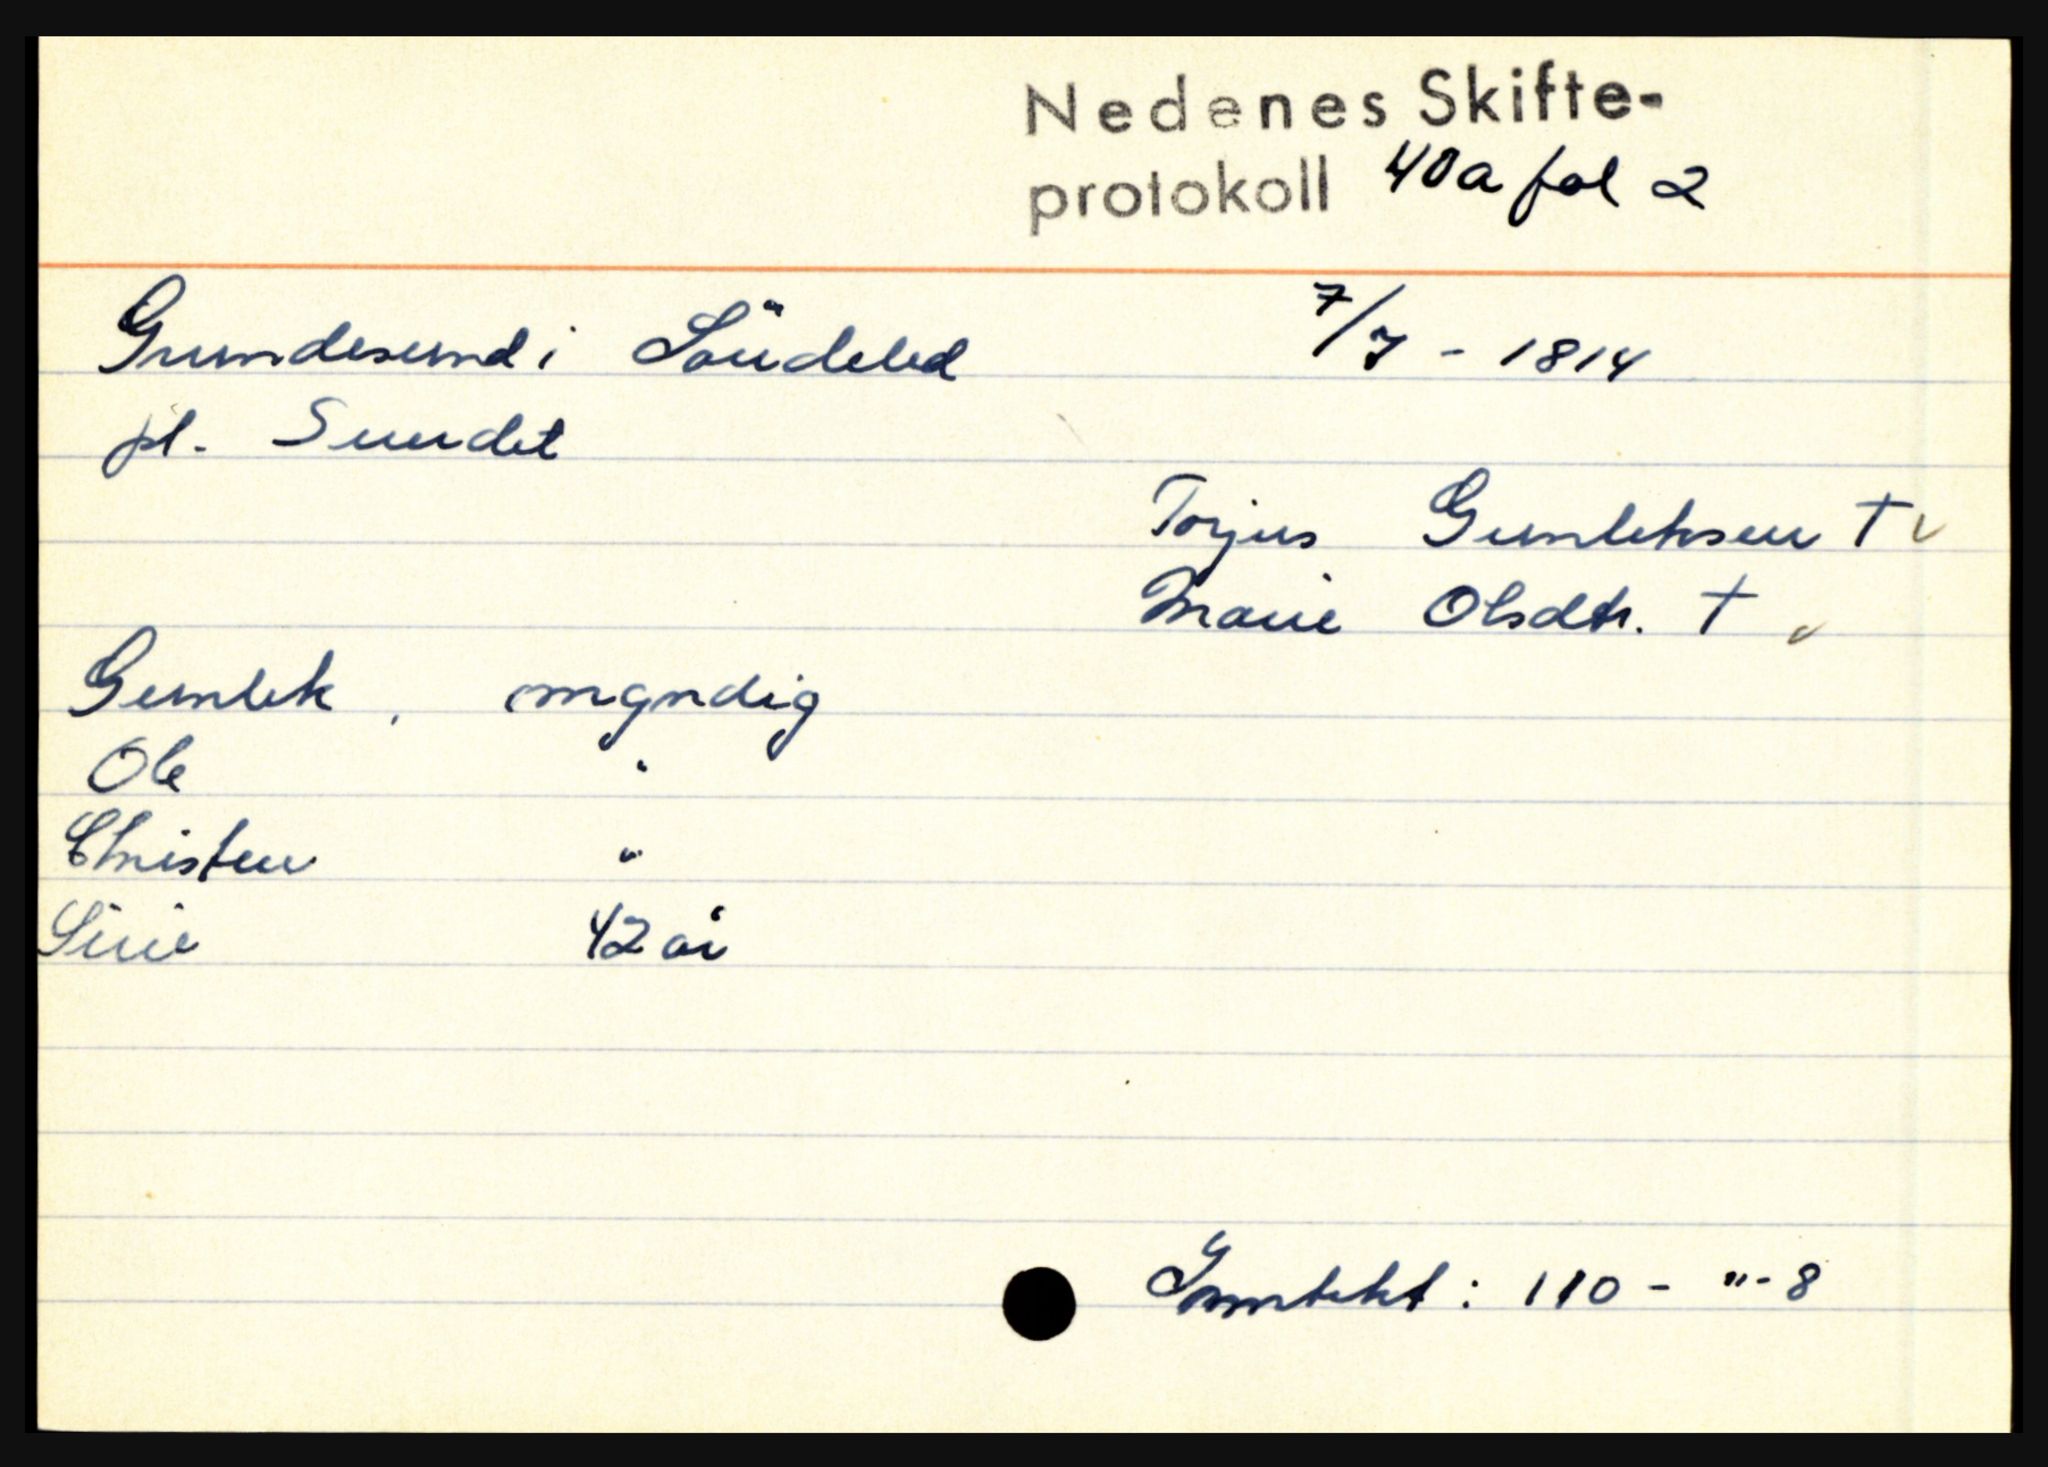 Nedenes Skifte-
protokoll 40a fol 2
Grundesund i Söndeled 7/7 - 1814
pl. Sundet
Torjus Gunleksen † ✓
Marie Olsdtr. † ✓
Gunlek, myndig
Ole "
Christen "
Sirie 42 år
Inntekt: 110 - " - 8